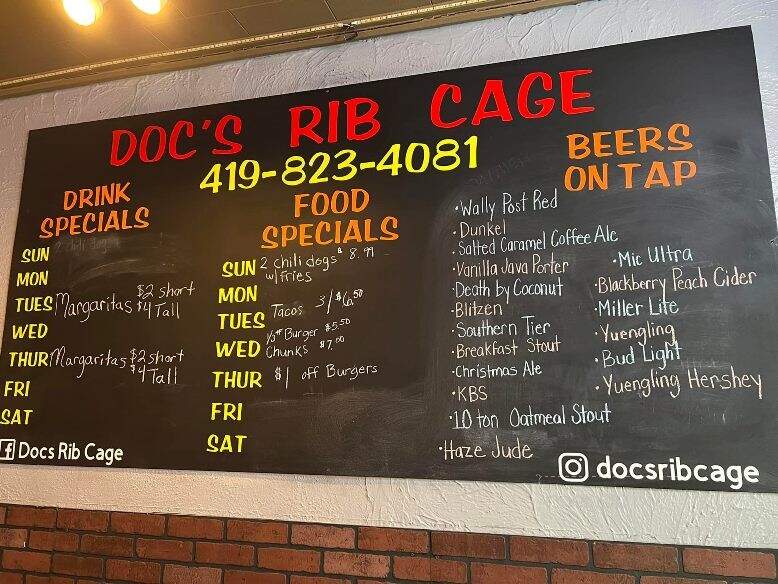 DOC'S RIB CAGE
419-823-4081
DRINK
SPECIALS
SUN
MON
TUES Margaritas $2 short
$4 Tall
WED
THUR Margaritas $2 short
$4 Tall
FRI
SAT
Docs Rib Cage
FOOD
SPECIALS
SUN 2 chili dogs 8.99
w/fries
MON
TUES Tacos 3/$6.50
WED 1/3# Burger $5.50
Chunks $7.00
THUR $1 off Burgers
FRI
SAT
BEERS
ON TAP
•Wally Post Red
•Dunkel
•Salted Caramel Coffee Ale
•Vanilla Java Porter
•Death by Coconut
•Blitzen
•Southern Tier
•Breakfast Stout
•Christmas Ale
•KBS
•10 ton Oatmeal Stout
•Haze Jude
•Mic Ultra
•Blackberry Peach Cider
•Miller Lite
•Yuengling
•Bud Light
•Yuengling Hershey
docsribcage